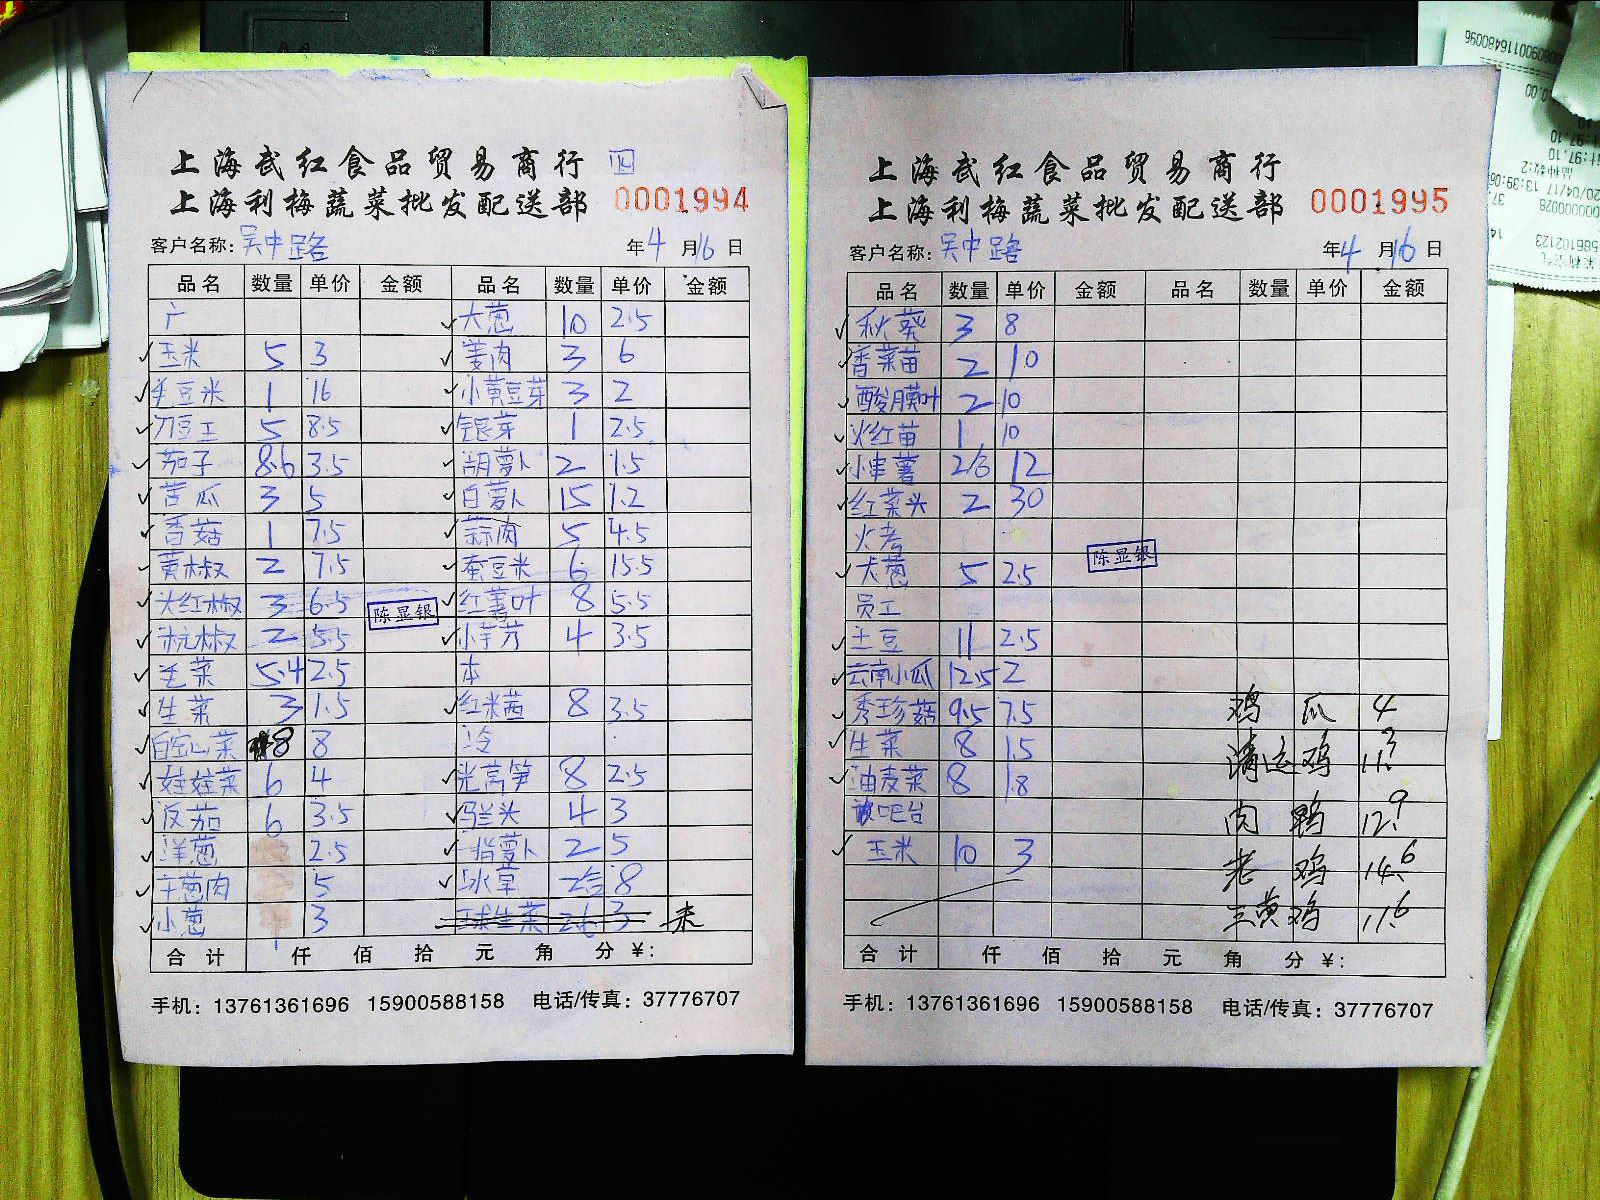 上海武红食品贸易商行
上海利梅蔬菜批发配送部
0001994
客户名称: 吴中路 年 4 月 16 日
品名 数量 单价 金额 品名 数量 单价 金额
大葱 10 2.5
玉米 5 3 姜肉 3 6
毛豆米 1 16 小黄豆芽 3 2
刀豆王 5 8.5 银芽 1 2.5
茄子 8.6 3.5 胡萝卜 2 1.5
苦瓜 3 5 白萝卜 15 1.2
香菇 1 7.5 蒜肉 5 4.5
黄椒 2 7.5 蚕豆米 6 15.5
大红椒 3 6.5 红薯叶 8 5.5
杭椒 2 5.5 小芋艿 4 3.5
陈显银
毛菜 5.4 2.5 本
生菜 3 1.5 红米茜 8 3.5
8 8 冷
娃娃菜 6 4 光莴笋 8 2.5
反茄 6 3.5 马兰头 4 3
洋葱 2.5 萝卜 2 5
干葱肉 5 水草 2 8
小葱 3 球生菜 2.6 3 未
合计 仟 佰 拾 元 角 分 ¥:
手机: 13761361696 15900588158 电话/传真: 37776707
上海武红食品贸易商行
上海利梅蔬菜批发配送部
0001995
客户名称: 吴中路 年 4 月 16 日
品名 数量 单价 金额 品名 数量 单价 金额
秋葵 3 8
香菜苗 2 10
酸膜叶 2 10
火红苗 1 10
小串薯 12
红菜头 2 30
火考
大葱 5 2.5
陈显银
员工
土豆 11 2.5
云南小瓜 12.5 2
秀珍菇 9.5 7.5 鸡爪 4
生菜 8 1.5 清远鸡 11.3
油麦菜 8 1.8
吧台 肉鸭 12.9
玉米 10 3 老鸡 14.6
三黄鸡 11.6
合计 仟 佰 拾 元 角 分 ¥:
手机: 13761361696 15900588158 电话/传真: 37776707